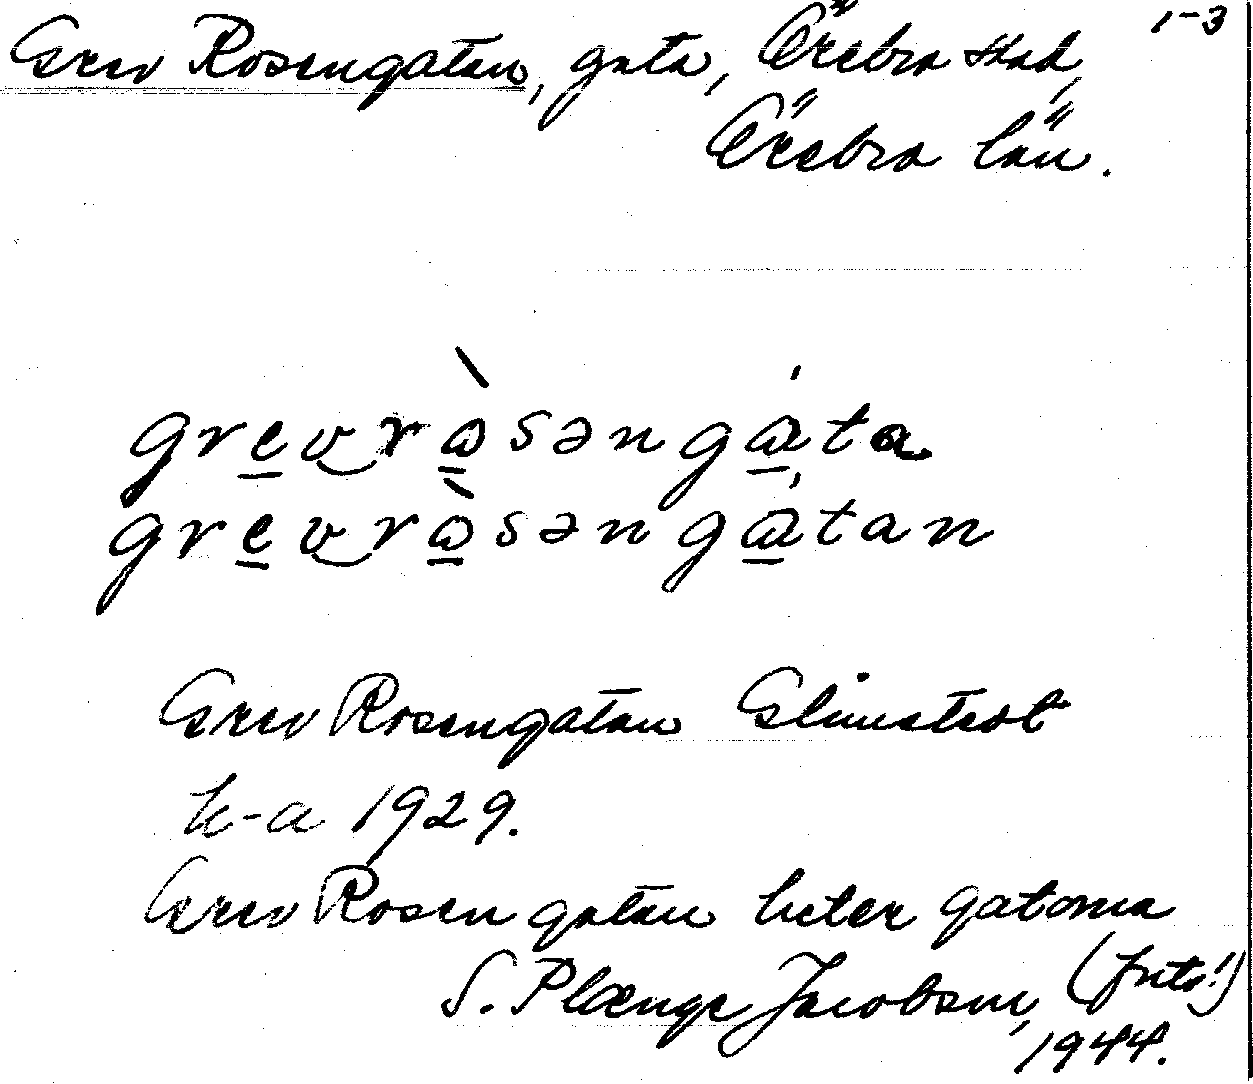 Grev Rosengatan, gata, Örebro stad, 1-3
Örebro län.
grevròsəngáta
grevròsəngátan
Grev Rosengatan Glimstedt
k-a 1929.
Grev Rosengatan heter gatorna
S. Plænge Jacobson, (frits!)
1944.